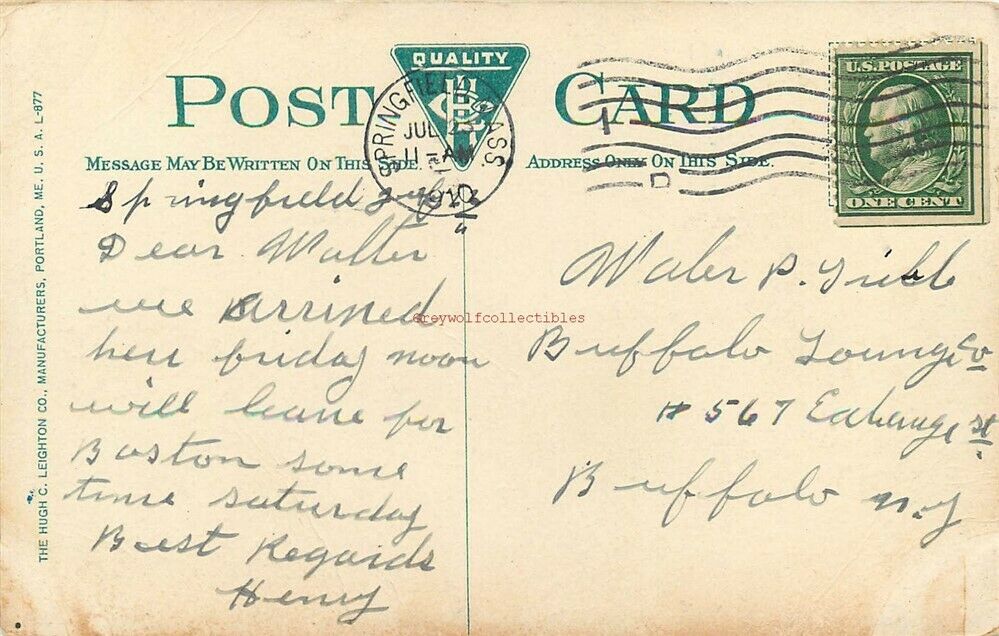 QUALITY
POST CARD
U.S. POSTAGE
ONE CENT
SPRINGFIELD, MASS.
JUL 23
11-AM
1910
D
MESSAGE MAY BE WRITTEN ON THIS SIDE.
ADDRESS ONLY ON THIS SIDE.
THE HUGH C. LEIGHTON CO., MANUFACTURERS, PORTLAND, ME. U. S. A. L-877
Springfield
Dear Walter
we arrived
here friday noon
will leave for
Boston some
time saturday
Best Regards
Henry
Greywolfcollectibles
Walter P.
Buffalo Lounge Co
# 567 Exchange st.
Buffalo n.y